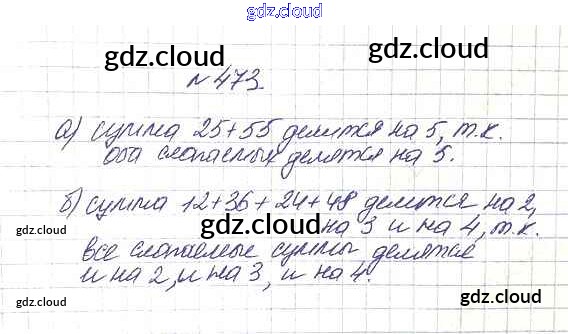 gdz.cloud
gdz.cloud gdz.cloud
№473.
а) сумма 25+55 делится на 5, т.к.
оба слагаемых делятся на 5.
gdz.cloud
б) сумма 12+36+24+48 делится на 2,
на 3 и на 4, т.к.
gdz.cloud
все слагаемые суммы делятся
и на 2, и на 3, и на 4.
gdz.cloud gdz.cloud gdz.cloud